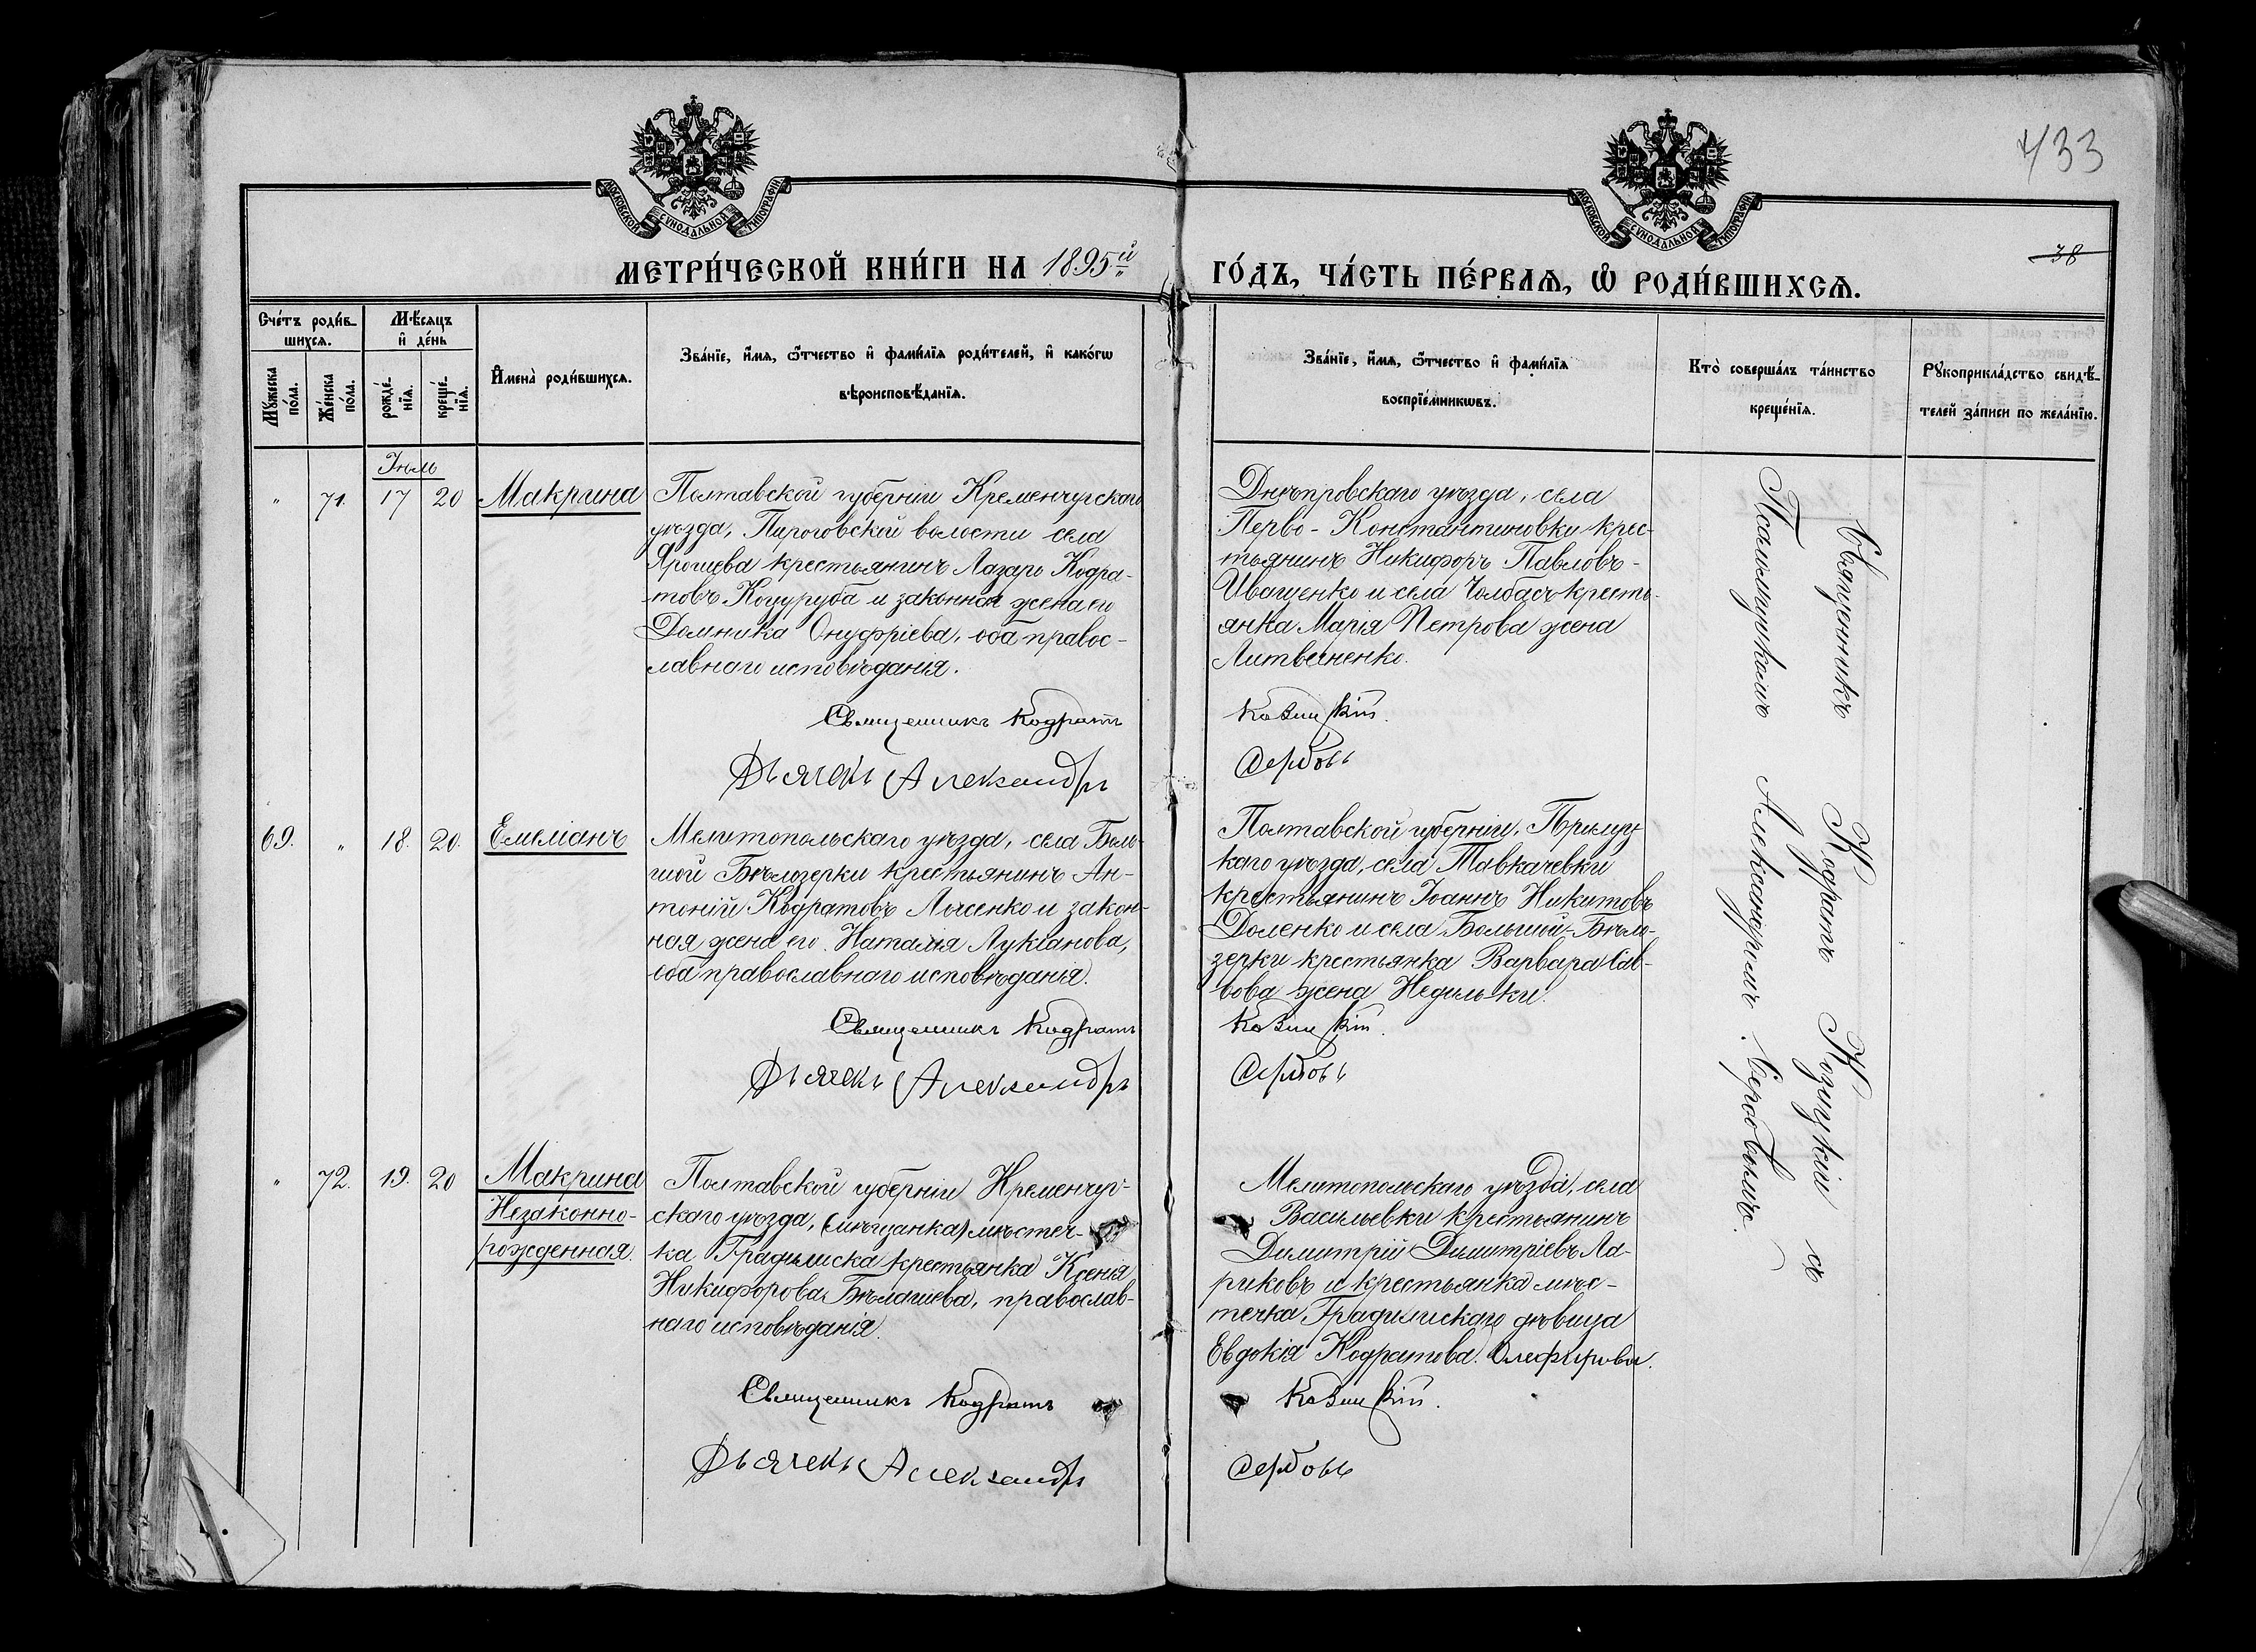 433
38
МОСКОВСКОЙ СУНОДАЛЬНОЙ ТИПОГРАФІИ
МОСКОВСКОЙ СУНОДАЛЬНОЙ ТИПОГРАФІИ
МЕТРИ́ЧЕСКОЙ КНИ́ГИ НА 1895й
ГО́ДЪ, ЧА́СТЬ ПЕ́РВАѦ, Ѽ РОДИ́ВШИХСѦ.
Сче́тъ роди́в-
шихсѧ.
Мѣ́сяцъ
и҆ де́нь
Мꙋ́жеска
по́ла.
Же́нска
по́ла.
рожде́-
нїѧ.
креще́-
нїѧ.
И҆мена̀ роди́вшихсѧ.
Зва́нїе, и҆́мѧ, ѻ҆́тчество и҆ фами́лїѧ роди́телей, и҆ како́гѡ
вѣроисповѣ́данїѧ.
Зва́нїе, и҆́мѧ, ѻ҆́тчество и҆ фами́лїѧ
воспрїе́мникѡвъ.
Кто̀ соверша́лъ та́инство
креще́нїѧ.
Рꙋкоприкла́дство свидѣ́-
телей за́писи по жела́нїю.
Іюль
" 71. 17 20 Макрина
Полтавской губерніи Кременчугскаго
уѣзда, Пироговской волости села
Ярошева крестьянинъ Лазарь Кодра-
товъ Коцуруба и законная жена его
Домника Онуфріева, оба правос-
лавнаго исповѣданія.
Священникъ Кодратъ
Дьячекъ Александръ
Днѣпровскаго уѣзда, села
Перво-Константиновки крес-
тьянинъ Никифоръ Павловъ-
Иващенко и села Чолбасъ кресть-
янка Марія Петрова жена
Литвиненко.
Козицкій.
Сербовъ
69. " 18. 20. Емеліанъ
Мелитопольскаго уѣзда, села Боль-
шой Бѣлозерки крестьянинъ Ан-
тоній Кодратовъ Лысенко и закон-
ная жена его Наталія Лукіанова,
оба православнаго исповѣданія.
Священникъ Кодратъ
Дьячекъ Александръ
Полтавской губерніи, Прилуц-
каго уѣзда, села Тавкачевки
крестьянинъ Іоаннъ Никитовъ
Доленко и села Большой-Бѣло-
зерки крестьянка Варвара Сав-
вова жена Недильки.
Козицкій.
Сербовъ
" 72. 19. 20 Макрина
Незаконно-
рожденная.
Полтавской губерніи Кременчуг-
скаго уѣзда, (мѣщанка) мѣстеч-
ка Градижска крестьянка Ксенія
Никифорова Бѣлашева, православ-
наго исповѣданія.
Священникъ Кодратъ
Дьячекъ Александръ
Мелитопольскаго уѣзда, села
Васильевки крестьянинъ
Димитрій Димитріевъ Ла-
риковъ и крестьянка мѣс-
течка Градижскаго дѣвица
Евдокія Кодратова Олефирова.
Козицкій.
Сербовъ
Священникъ Кодратъ Козицкій съ
Псаломщикомъ Александромъ Сербовымъ.